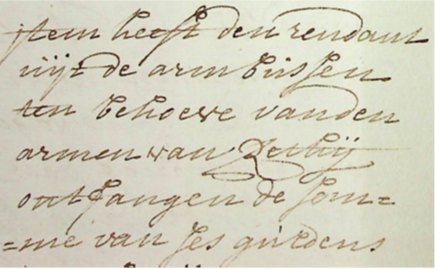 jtem heeft den rendant
uijt de arm bussen
ten behoeve vanden
armen van Rethij
ontfangen de som=
=me van ses guldens